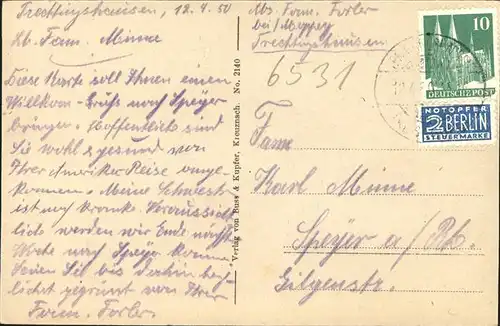 Trechtingshausen, 12.4.50
Lb. Fam. Minne
Diese Karte soll Ihnen einen
Willkom-Gruß nach Speyer
bringen. Hoffentlich sind
Sie wohl & gesund von
Ihrer Amerika Reise ange-
kommen. Meine Schwester
ist noch krank. Voraussicht-
lich werden wir Ende nächste
Woche nach Speyer kommen.
Seien Sie bis dahin herz-
lichst gegrüßt von Ihrer
Fam. Forler.
Verlag von Russ & Kupfer, Kreuznach. No. 2140
Abs. Fam. Forler
bei
Trechtingshausen
6531
10
DEUTSCHE POST
NOTOPFER
2 BERLIN
STEUERMARKE
Fam.
Karl Minne
Speyer a/Rh.
Gilgenstr.